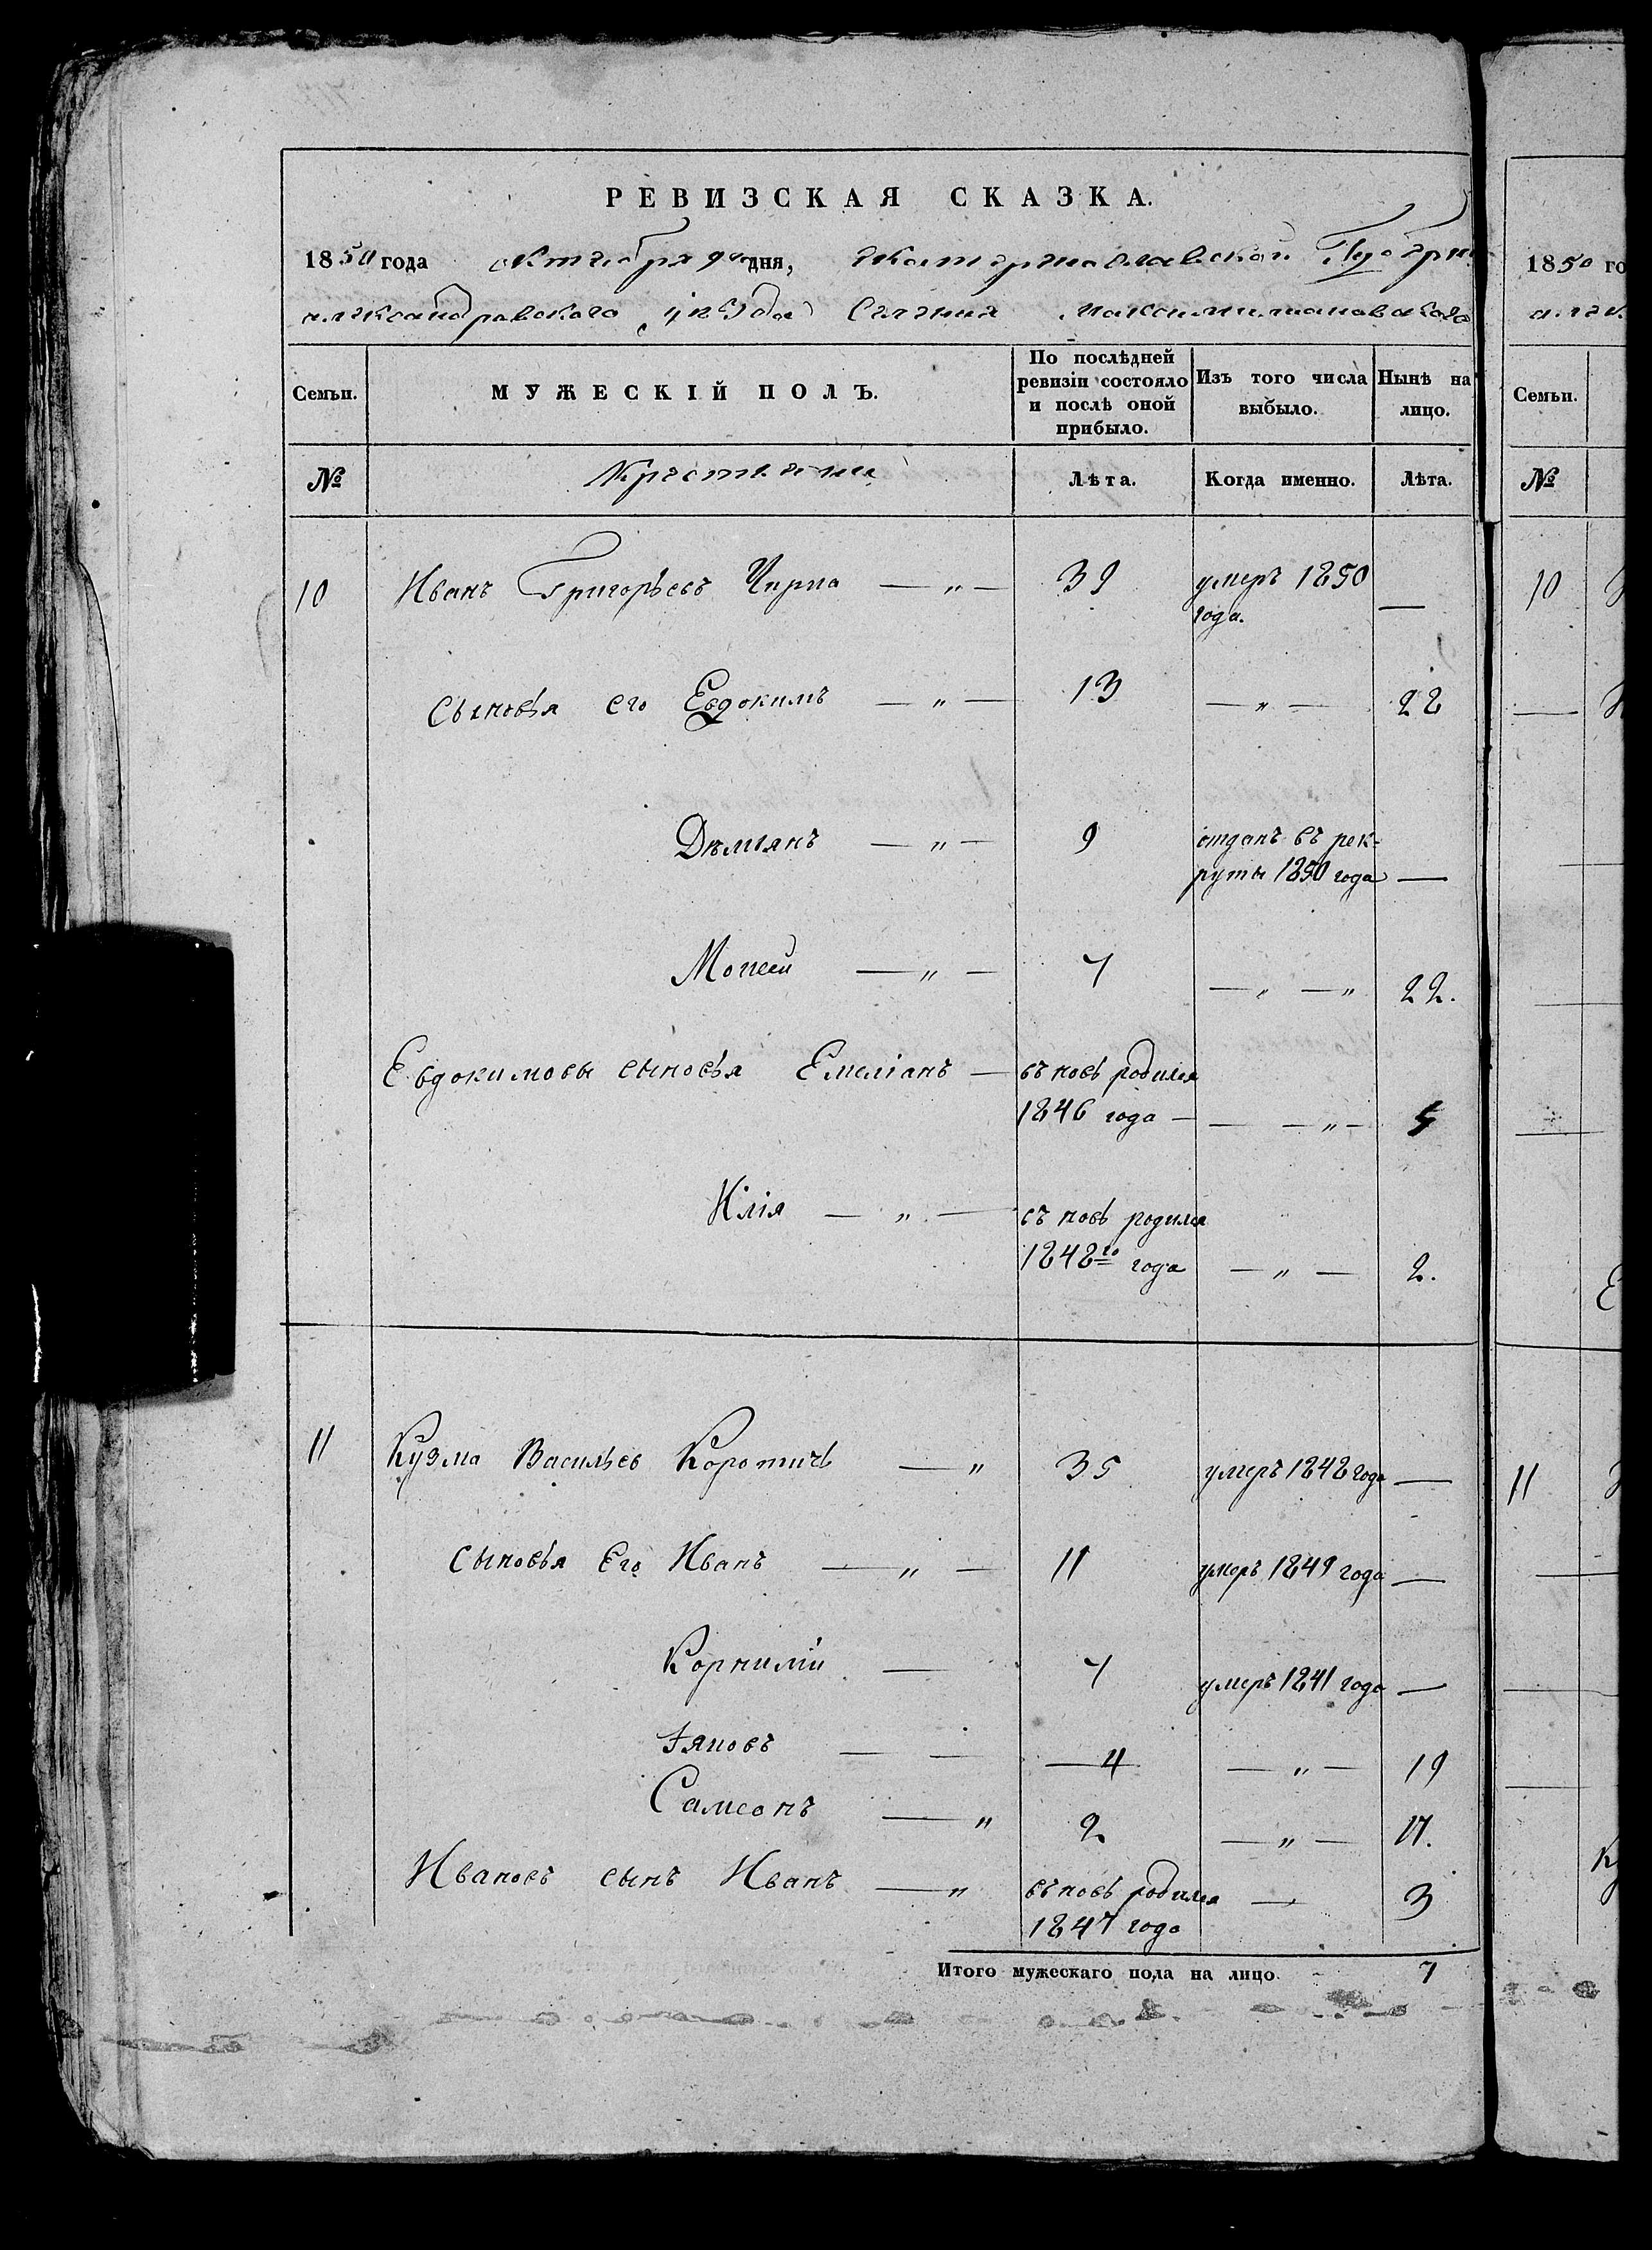 РЕВИЗСКАЯ СКАЗКА.
1850 года октября 9го дня, Екатеринославской Губерн
Александровского уезда Селения
Семьи.
МУЖЕСКІЙ ПОЛЪ.
По послѣдней ревизіи состояло и послѣ оной прибыло.
Изъ того числа выбыло.
Нынѣ на лицо.
№ Крестьяне Лѣта. Когда именно. Лѣта.
10 Иванъ Григорьевъ Чирва — „ — 39 умеръ 1850
года. —
Сыновья его Евдокимъ — „ — 13 — „ — 22
Дѣміянъ — „ — 9 отданъ въ рек-
руты 1850 года —
Мопсей — „ — 7 — „ — „ 22.
Евдокимовы сыновья Емеліанъ — въ новѣ родился
1846 года — — — „ — 5
Илія — „ — въ новѣ родился
1848го года — „ — 2.
11 Кузма Васильев Коротичь — „ 35 умеръ 1842 года —
сыновья Его Иванъ — „ — 11 умеръ 1849 года —
Корнилій — 7 умеръ 1841 года —
Іяковъ — — — 4 — „ — 19
Самсонъ — „ 2 — „ — 17.
Ивановъ сынъ Иванъ — „ въ новѣ родился — 3
1847 года
Итого мужескаго пола на лицо 7
1850 го
Семьи.
№
10
11